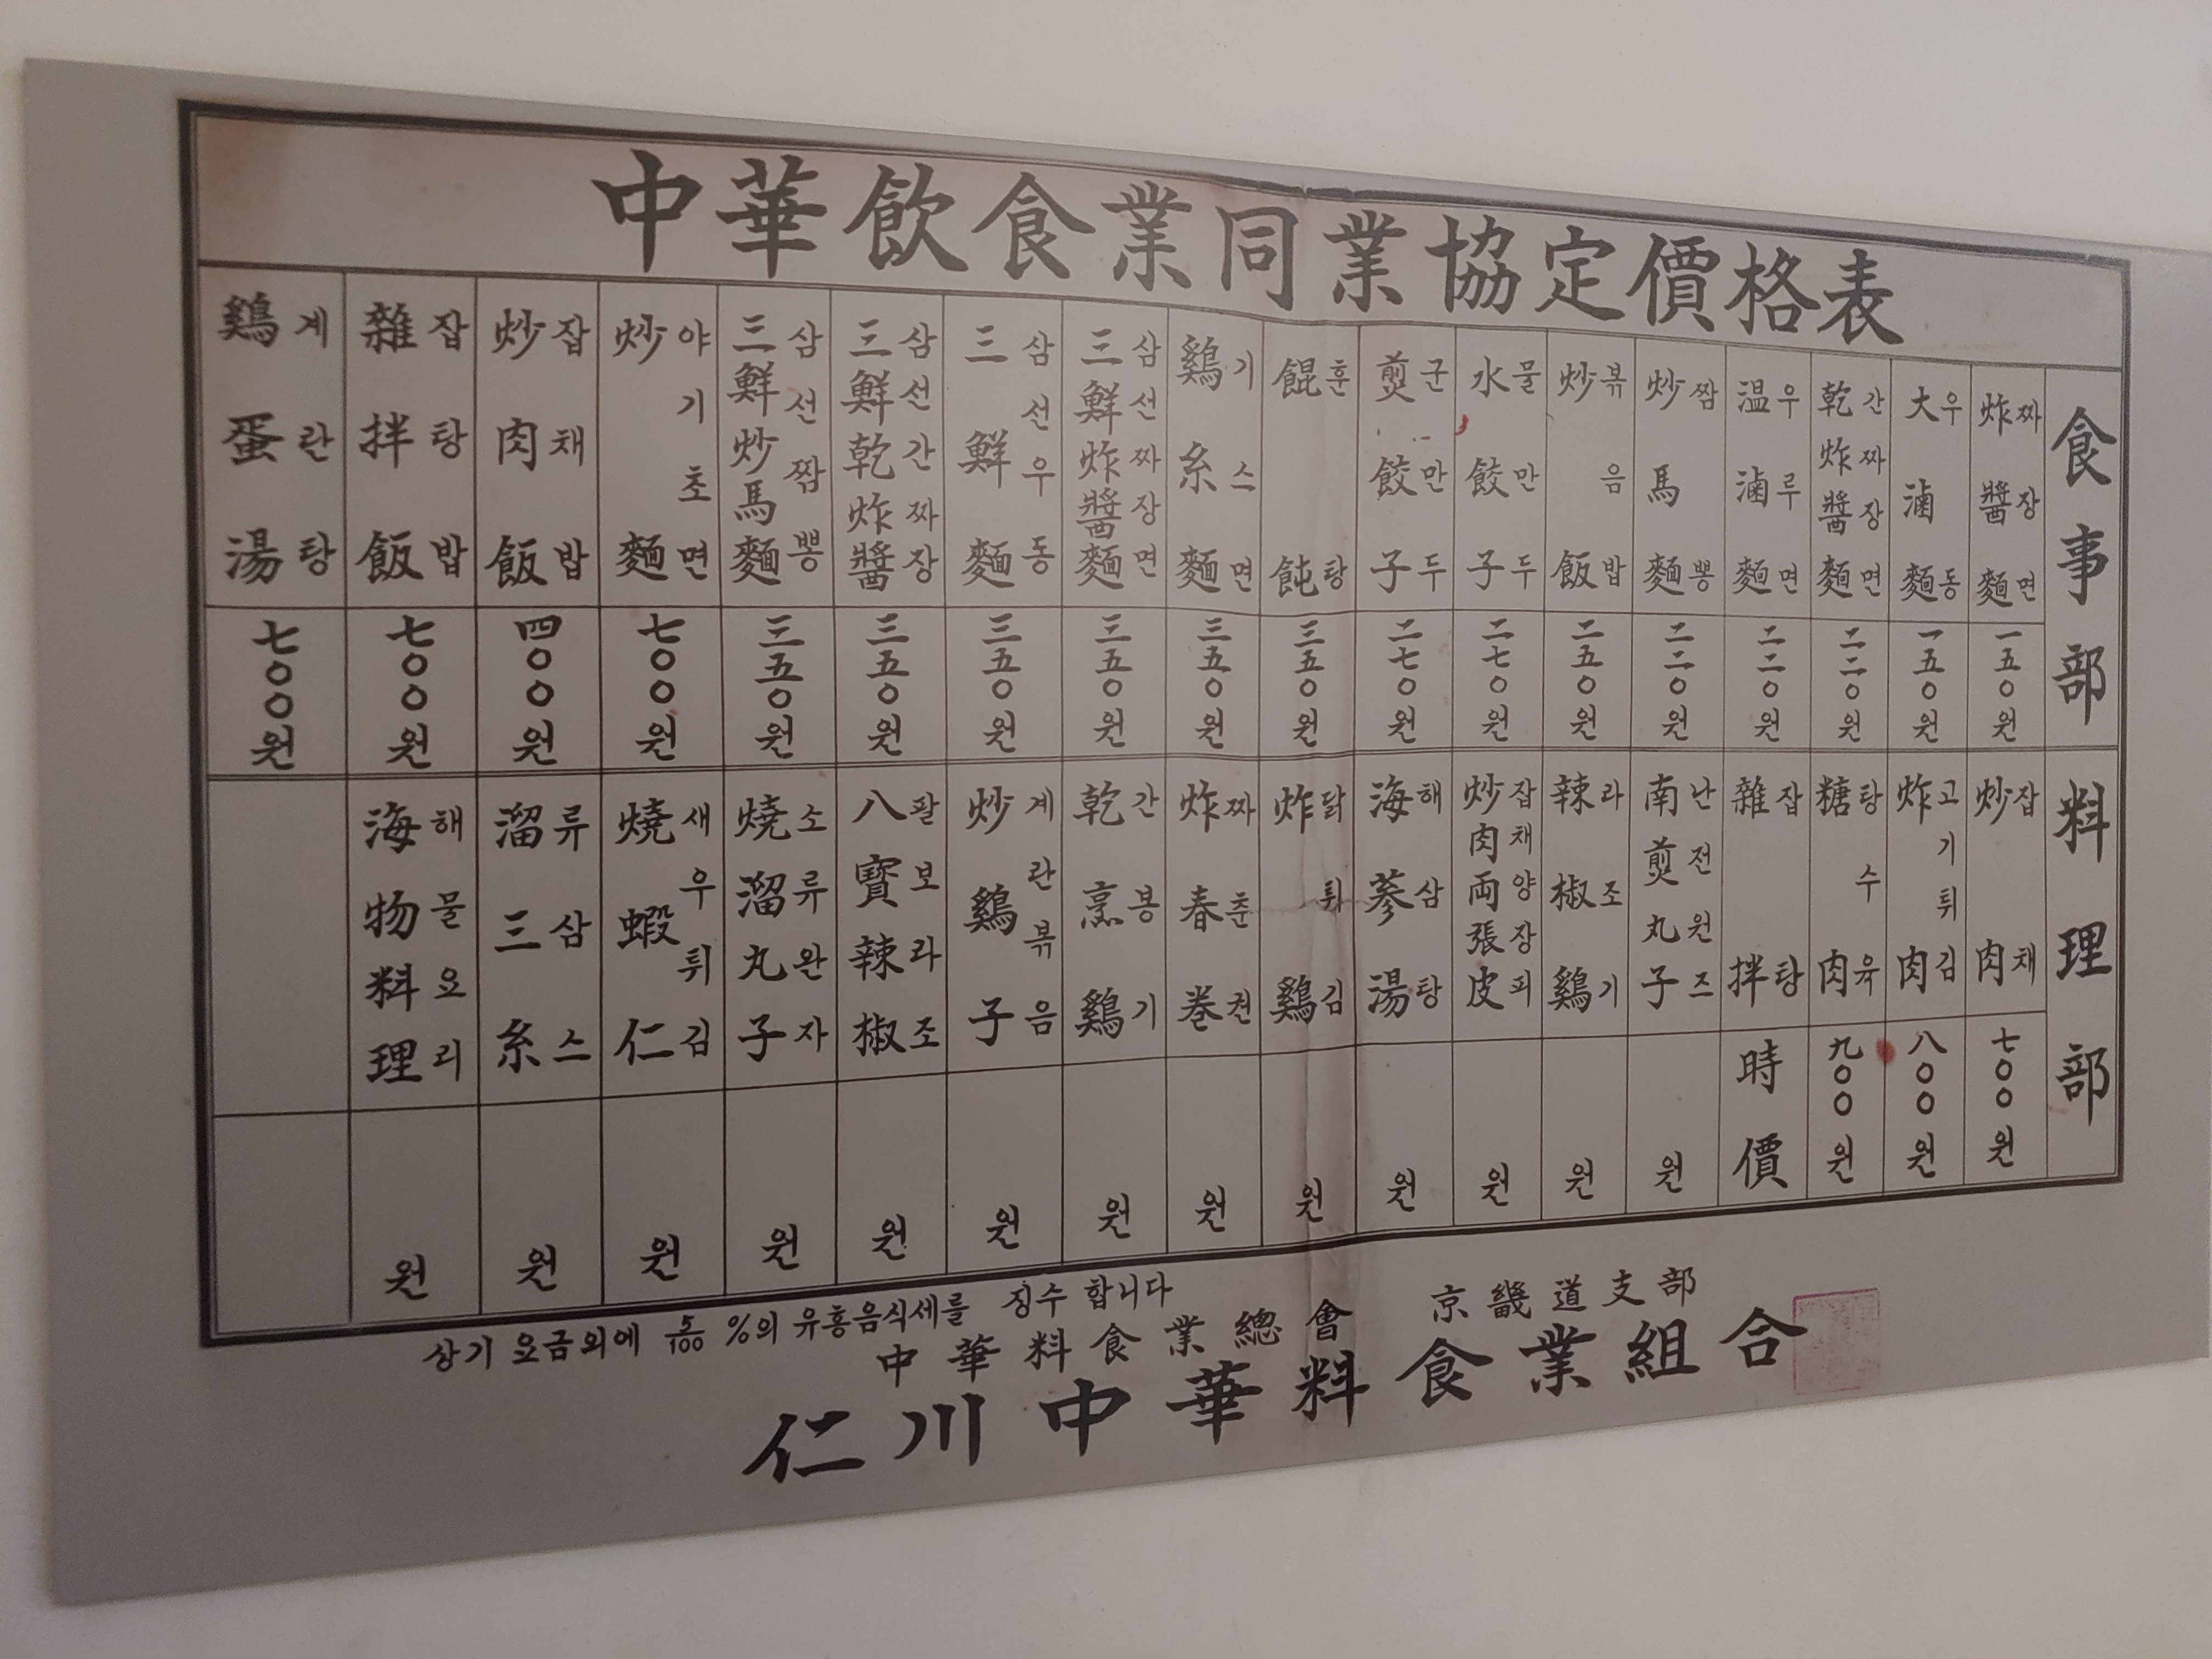 中華飮食業同業協定價格表
食事部
炸醬麵 짜장면 一五〇원
大滷麵 우동 一五〇원
乾炸醬麵 간짜장면 二二〇원
温滷麵 우루면 二二〇원
炒馬麵 짬뽕 二二〇원
炒飯 볶음밥 二五〇원
水餃子 물만두 二七〇원
煎餃子 군만두 二七〇원
餛飩 훈탕 三五〇원
鷄糸麵 기스면 三五〇원
三鮮炸醬麵 삼선짜장면 三五〇원
三鮮麵 삼선우동 三五〇원
三鮮乾炸醬 삼선간짜장 三五〇원
三鮮炒馬麵 삼선짬뽕 三五〇원
炒麵 야기초면 七〇〇원
炒肉飯 잡채밥 四〇〇원
雜拌飯 잡탕밥 七〇〇원
鷄蛋湯 계란탕 七〇〇원
料理部
炒肉 잡채 七〇〇원
炸肉 고기튀김 八〇〇원
糖肉 탕수육 九〇〇원
雜拌 잡탕 時價
南煎丸子 난전원즈 원
辣椒鷄 라조기 원
炒肉両張皮 잡채양장피 원
海蔘湯 해삼탕 원
炸鷄 닭튀김 원
炸春巻 짜춘권 원
乾烹鷄 간봉기 원
炒鷄子 계란볶음 원
八寶辣椒 팔보라조 원
燒溜丸子 소류완자 원
燒蝦仁 새우튀김 원
溜三糸 류삼스 원
海物料理 해물요리 원
상기 요금외에 5/100 %의 유흥음식세를 징수 합니다
中華料食業總會 京畿道支部
仁川中華料食業組合